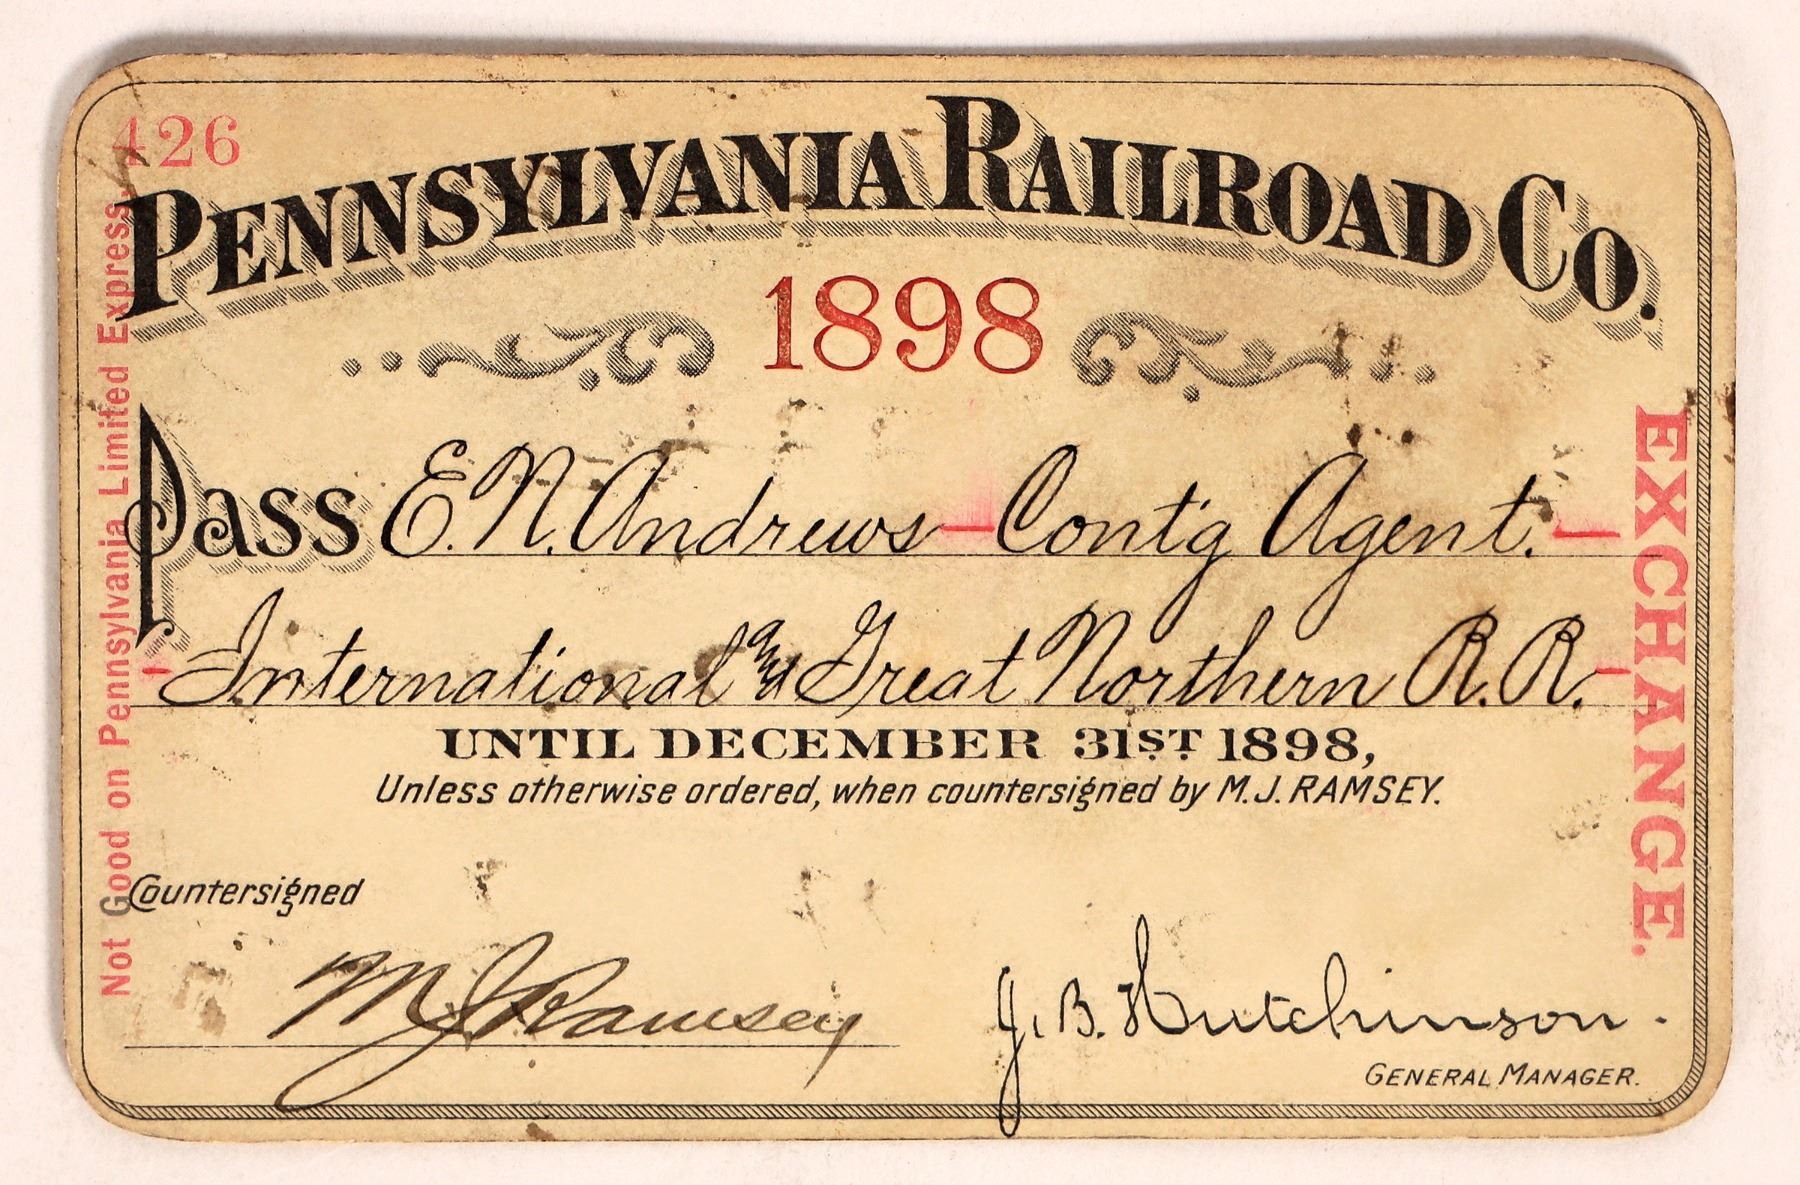 426
PENNSYLVANIA RAILROAD CO.
1898
Pass E. N. Andrews - Cont'g Agent. -
- International and Great Northern R. R. -
UNTIL DECEMBER 31ST 1898,
Unless otherwise ordered, when countersigned by M. J. RAMSEY.
Countersigned
M J Ramsey
J. B. Hutchinson.
GENERAL MANAGER.
Not Good on Pennsylvania Limited Express.
EXCHANGE.